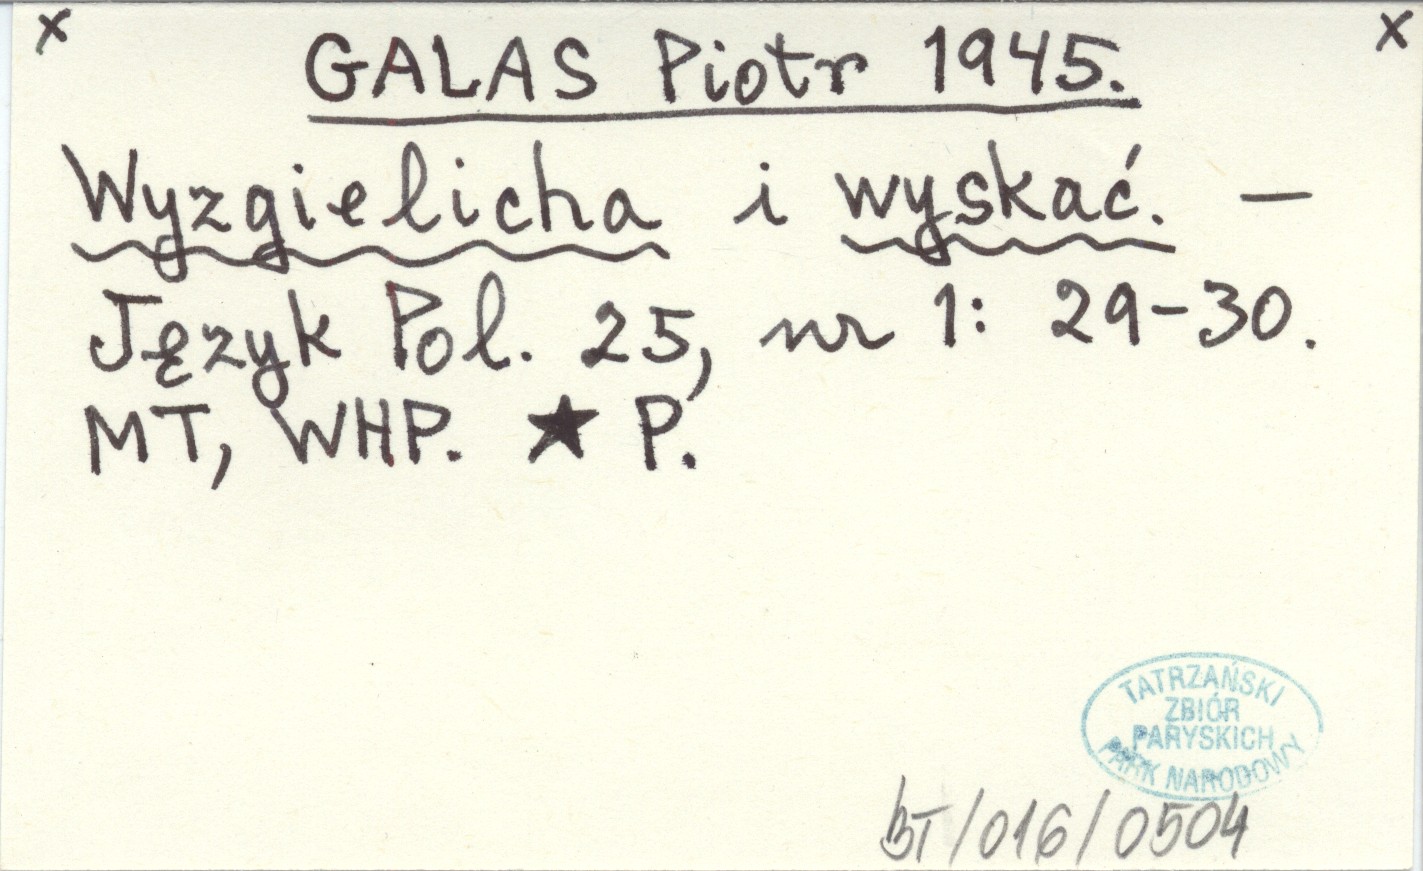 x x
GALAS Piotr 1945.
Wyzgielicha i wyskać. —
Język Pol. 25, nr 1: 29-30.
MT, WHP. ★ P.
TATRZAŃSKI
ZBIÓR
PARYSKICH
PARK NARODOWY
BT/016/0504